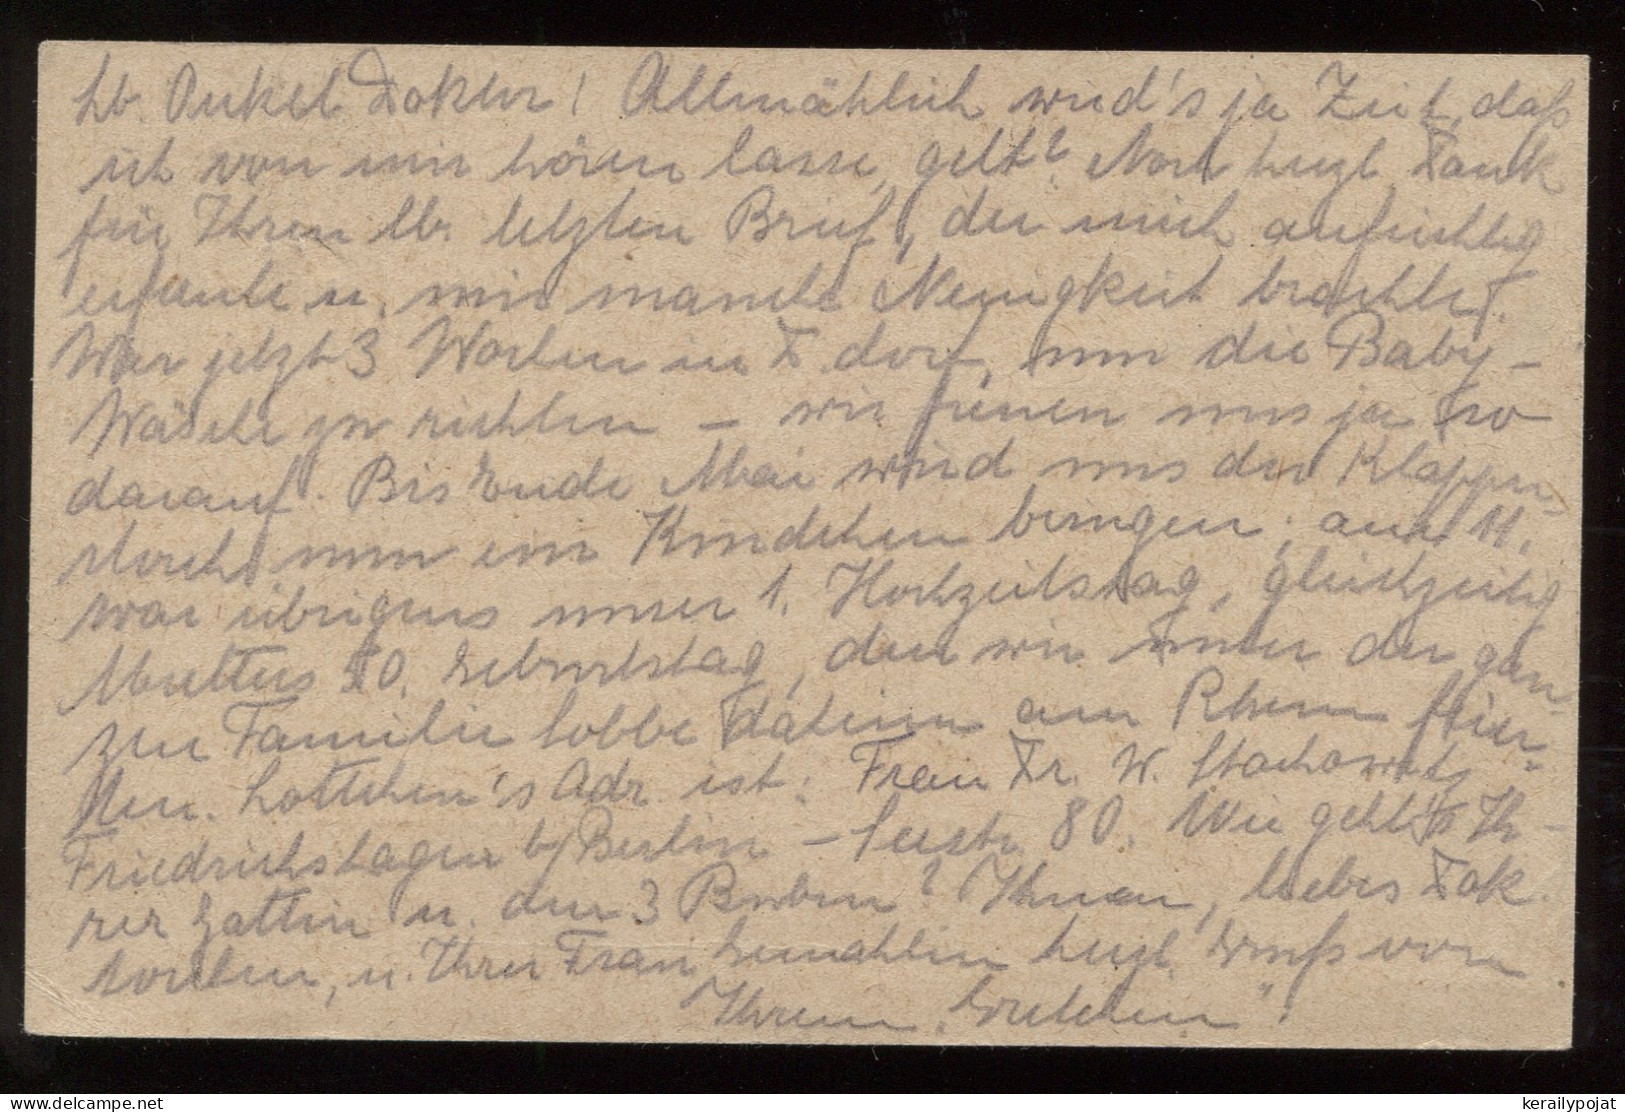 Lb. Onkel Doktor! Allmählich wird's ja Zeit, daß
ich von mir hören lasse, gelt? Noch herzl. Dank
für Ihren lb. letzten Brief, der mich aufrichtig
erfreute u. mir manche Neuigkeit brachte.
War jetzt 3 Wochen in D.dorf, um die Baby-
Wäsche zu richten – wir freuen uns ja so
darauf. Bis Ende Mai wird uns der Klapper-
storch nun ein Kindchen bringen; am 11.
war übrigens unser 1. Hochzeitstag, gleichzeitig
Mutters 50. Geburtstag, den wir mit der gan-
zen Familie am Rhein feier-
ten. Lottchen's Adr. ist: Frau Dr. W. Stachowitz
Friedrichshagen b/Berlin – Seestr. 80. Wie geht's Ih-
rer Gattin u. den 3 Buben? Ihnen, liebes Dok-
torlein, u. Ihrer Frau Gemahlin herzl. Gruß von
Ihrem "Gretchen"!
kerailypojat